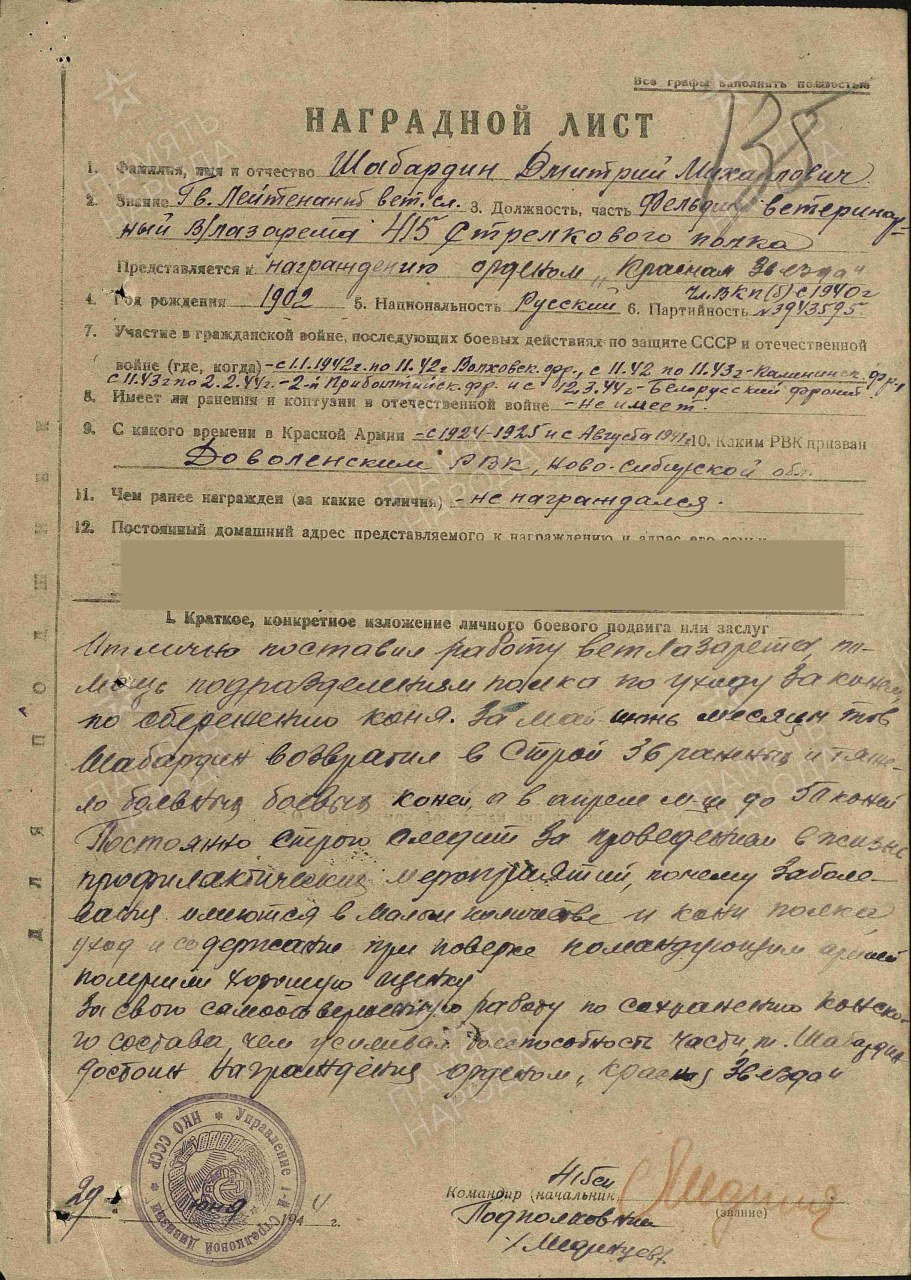 Все графы заполнять полностью
135
НАГРАДНОЙ ЛИСТ
1. Фамилия, имя и отчество Шабардин Дмитрий Михайлович
2. Звание Гв. Лейтенант вет. сл. 3. Должность, часть Фельдшер ветеринар-
ный В/лазарета 415 Стрелкового полка
Представляется к награждению орденом „Красная Звезда"
чл. ВКП(б) с 1940 г
4. Год рождения 1902 5. Национальность Русский 6. Партийность № 3943595.
7. Участие в гражданской войне, последующих боевых действиях по защите СССР и отечественной
войне (где, когда) – с 1.1.1942 г. по 11.42 г Волховск. фр., с 11.42 по 11.43 г – Калининск. фр.,
с 11.43 г по 2.2.44 г. – 2-й Прибалтийск. фр. и с 12.3.44 г – Белорусский фронт.
8. Имеет ли ранения и контузии в отечественной войне – не имеет.
9. С какого времени в Красной Армии – с 1924-1925 и с Августа 1941 г. 10. Каким РВК призван
Доволенским РВК, Ново-Сибирской обл.
11. Чем ранее награжден (за какие отличия) – не награждался.
12. Постоянный домашний адрес представляемого к награждению и адрес его семьи
I. Краткое, конкретное изложение личного боевого подвига или заслуг
Отлично поставил работу ветлазарета по-
мощь подразделениям полка по уходу за конем,
по сбережению коня. За май июнь месяцы тов
Шабардин возвратил в строй 36 раненых и тяже-
ло больных боевых коней, а в апреле м-це до 50 коней
Постоянно строго следит за проведением в жизнь
профилактических мероприятий, почему заболе-
вания имеются в малом количестве и кони полка
уход и содержание при поверке командующим армией
получили хорошую оценку
За свою самоотверженную работу по сохранению конско-
го состава, чем усиливал боеспособность части, т. Шабардин
достоин награждения орденом „Красная Звезда"
Командир (начальник) 415 сп
(звание)
Подполковник
/Мединцев/
29 июня 1944 г.
Управление 1-й Стрелковой Дивизии * НКО СССР *
ДЛЯ ПОДШИВКИ
ПАМЯТЬ НАРОДА